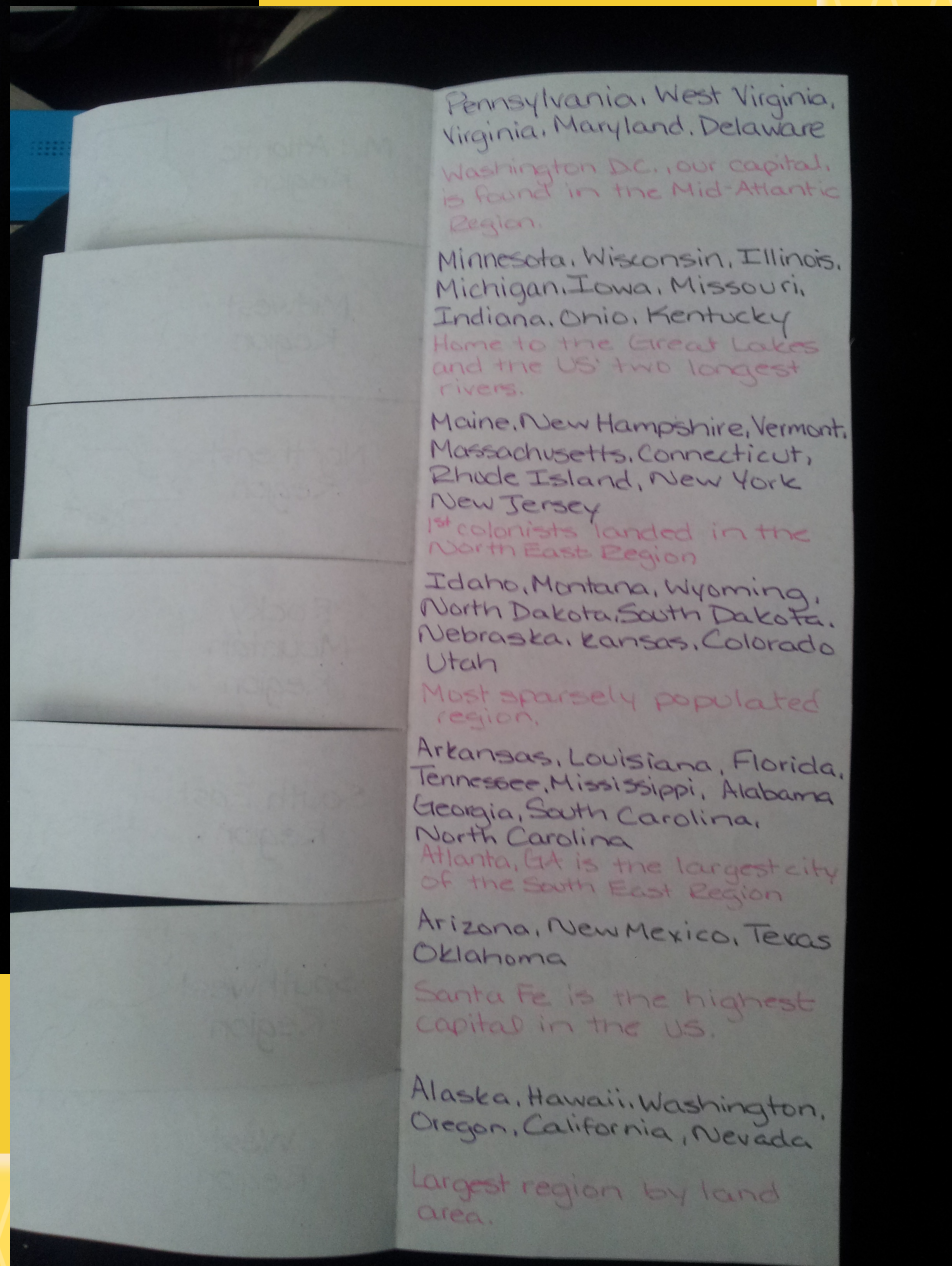 Pennsylvania, West Virginia,
Virginia, Maryland, Delaware
Washington D.C., our capital,
is found in the Mid-Atlantic
Region.
Minnesota, Wisconsin, Illinois,
Michigan, Iowa, Missouri,
Indiana, Ohio, Kentucky
Home to the Great Lakes
and the US' two longest
rivers.
Maine, New Hampshire, Vermont,
Massachusetts, Connecticut,
Rhode Island, New York
New Jersey
1st colonists landed in the
North East Region
Idaho, Montana, Wyoming,
North Dakota, South Dakota,
Nebraska, Kansas, Colorado
Utah
Most sparsely populated
region.
Arkansas, Louisiana, Florida,
Tennessee, Mississippi, Alabama
Georgia, South Carolina,
North Carolina
Atlanta, GA is the largest city
of the South East Region
Arizona, New Mexico, Texas
Oklahoma
Santa Fe is the highest
capital in the US.
Alaska, Hawaii, Washington,
Oregon, California, Nevada
Largest region by land
area.